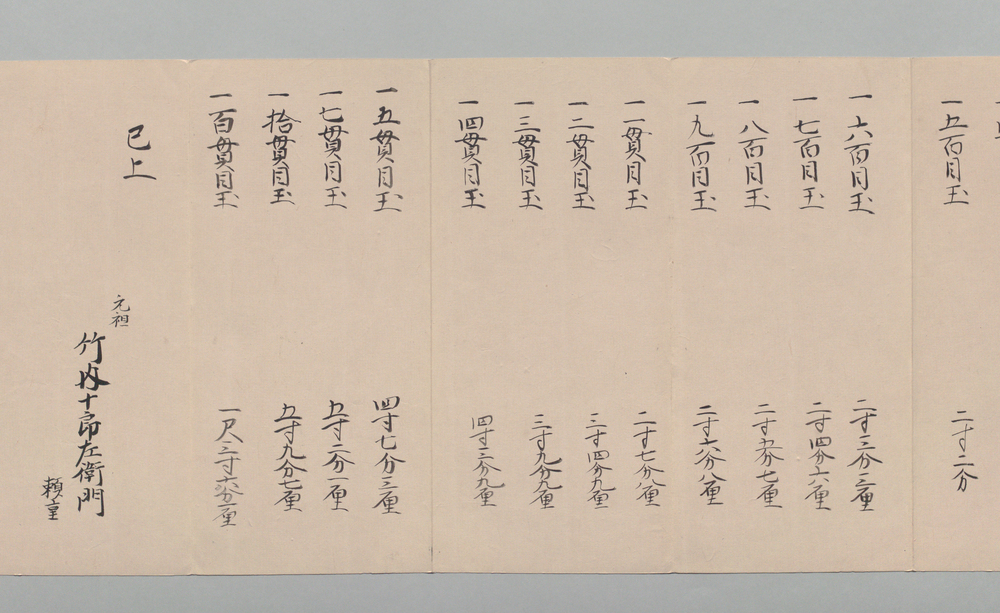 一五百目玉　二寸二分
一六百目玉　二寸三分三厘
一七百目玉　二寸四分六厘
一八百目玉　二寸五分七厘
一九百目玉　二寸六分八厘
一一貫目玉　二寸七分八厘
一二貫目玉　三寸四分九厘
一三貫目玉　三寸九分九厘
一四貫目玉　四寸三分九厘
一五貫目玉　四寸七分三厘
一七貫目玉　五寸二分一厘
一拾貫目玉　五寸九分七厘
一百貫目玉　一尺二寸六分一厘
已上
元祖
竹内十郎左衛門
頼重